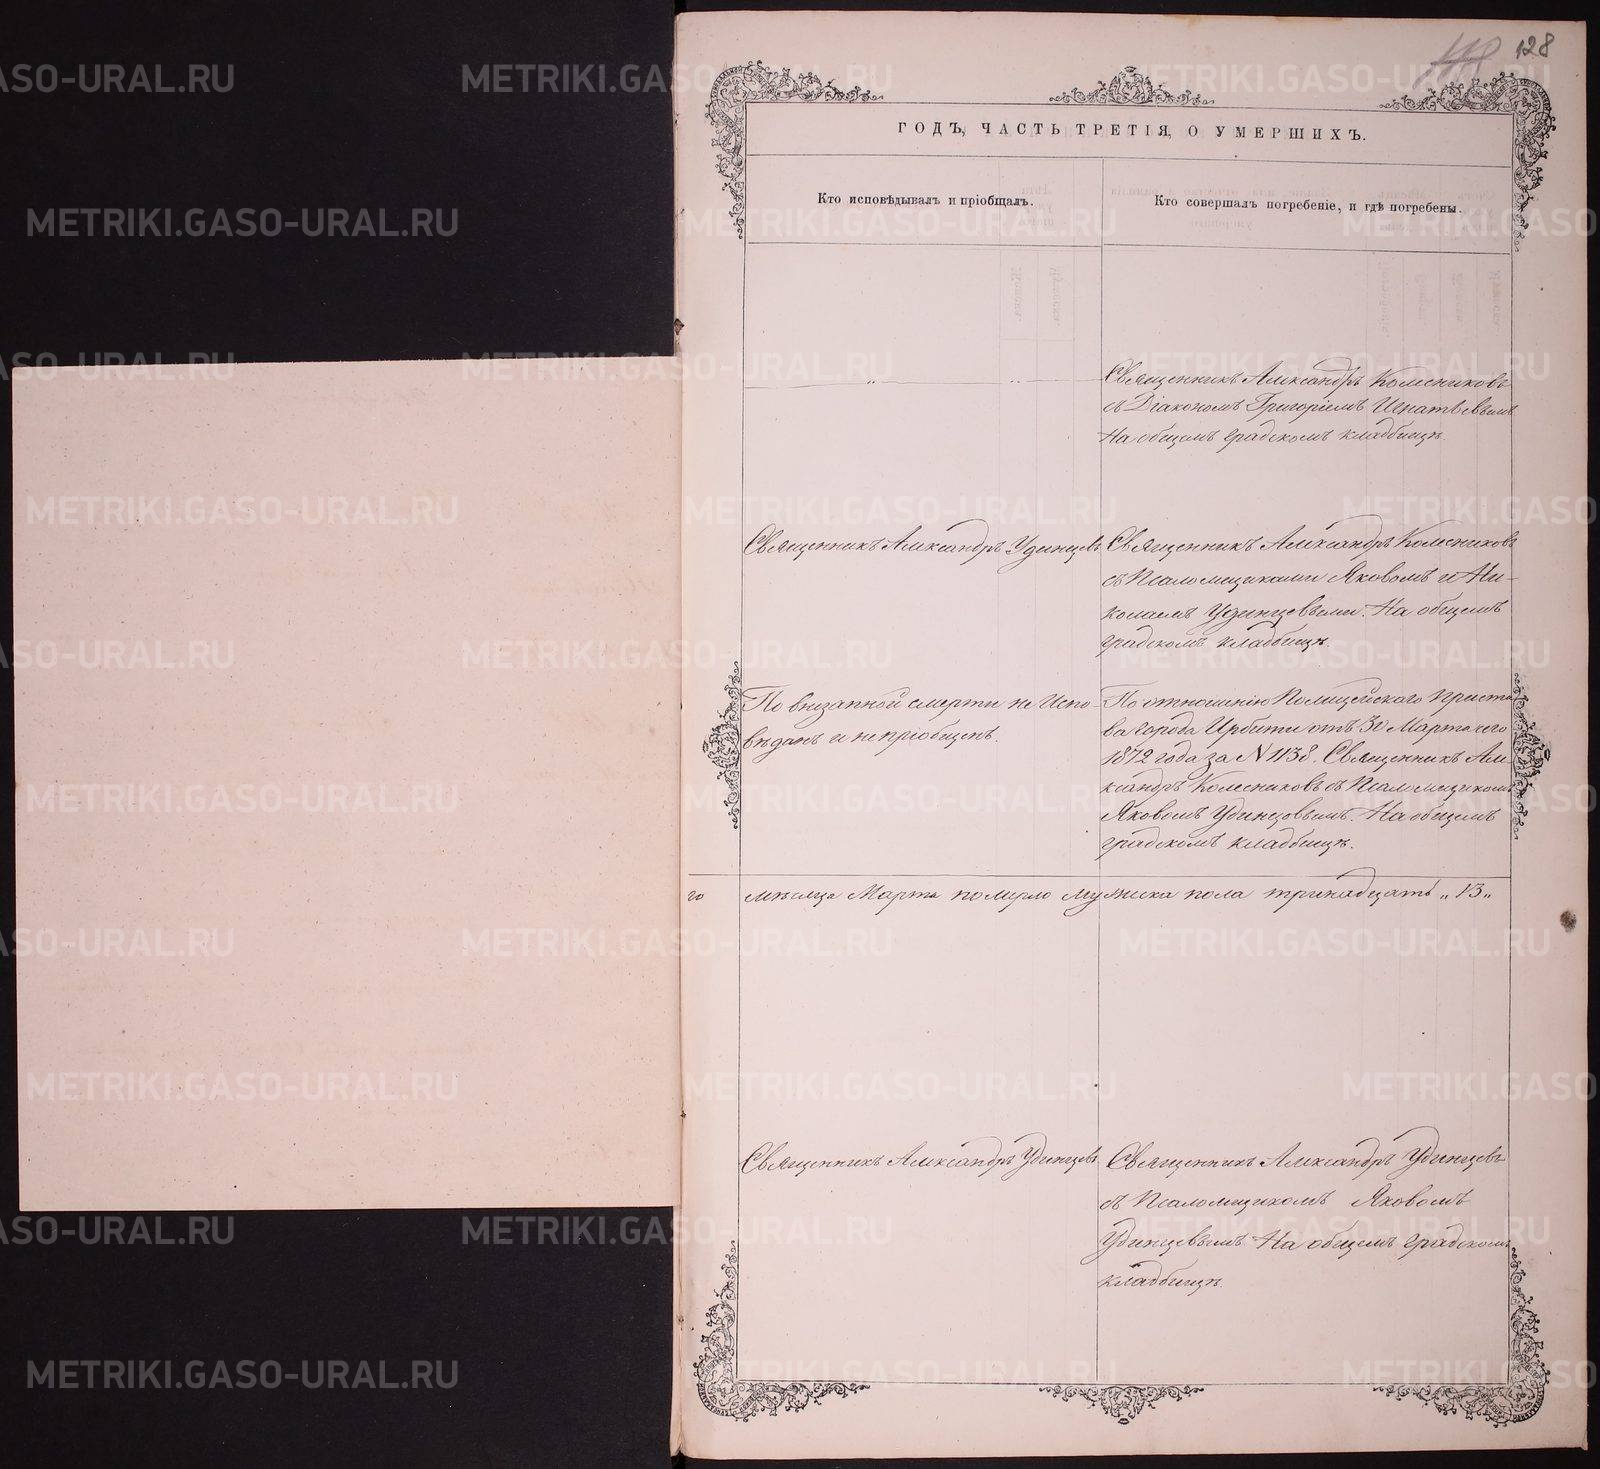 128
ГОДЪ, ЧАСТЬ ТРЕТІЯ, О УМЕРШИХЪ.
Кто исповѣдывалъ и пріобщалъ.
Кто совершалъ погребеніе, и гдѣ погребены.
Священникъ Александръ Колесниковъ
съ Діакономъ Григоріемъ Игнатьевымъ
На общемъ градскомъ кладбищѣ.
Священникъ Александръ Удинцевъ
Священникъ Александръ Колесниковъ
съ Псаломщиками Яковомъ и Ни-
колаемъ Удинцевыми. На общемъ
градскомъ кладбищѣ.
По внезапной смерти не Испо-
вѣданъ и непріобщенъ.
По отношенію Полицейскаго Приста
ва города Ирбити отъ 30 Марта сего
1872 года за N 1138. Священникъ Але-
ксандръ Колесниковъ съ Псаломщикомъ
Яковомъ Удинцовымъ. На общемъ
градскомъ кладбищѣ.
го мѣсяца Марта померло мужска пола тринадцать „13„
Священникъ Александръ Удинцевъ
Священникъ Александръ Удинцевъ
съ Псаломщикомъ Яковомъ
Удинцевымъ. На общемъ градскомъ
кладбищѣ.
METRIKI.GASO-URAL.RU